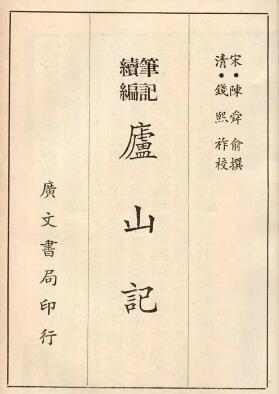 宋·陳舜俞撰
清·錢熙祚校
筆記
續編
廬山記
廣文書局印行